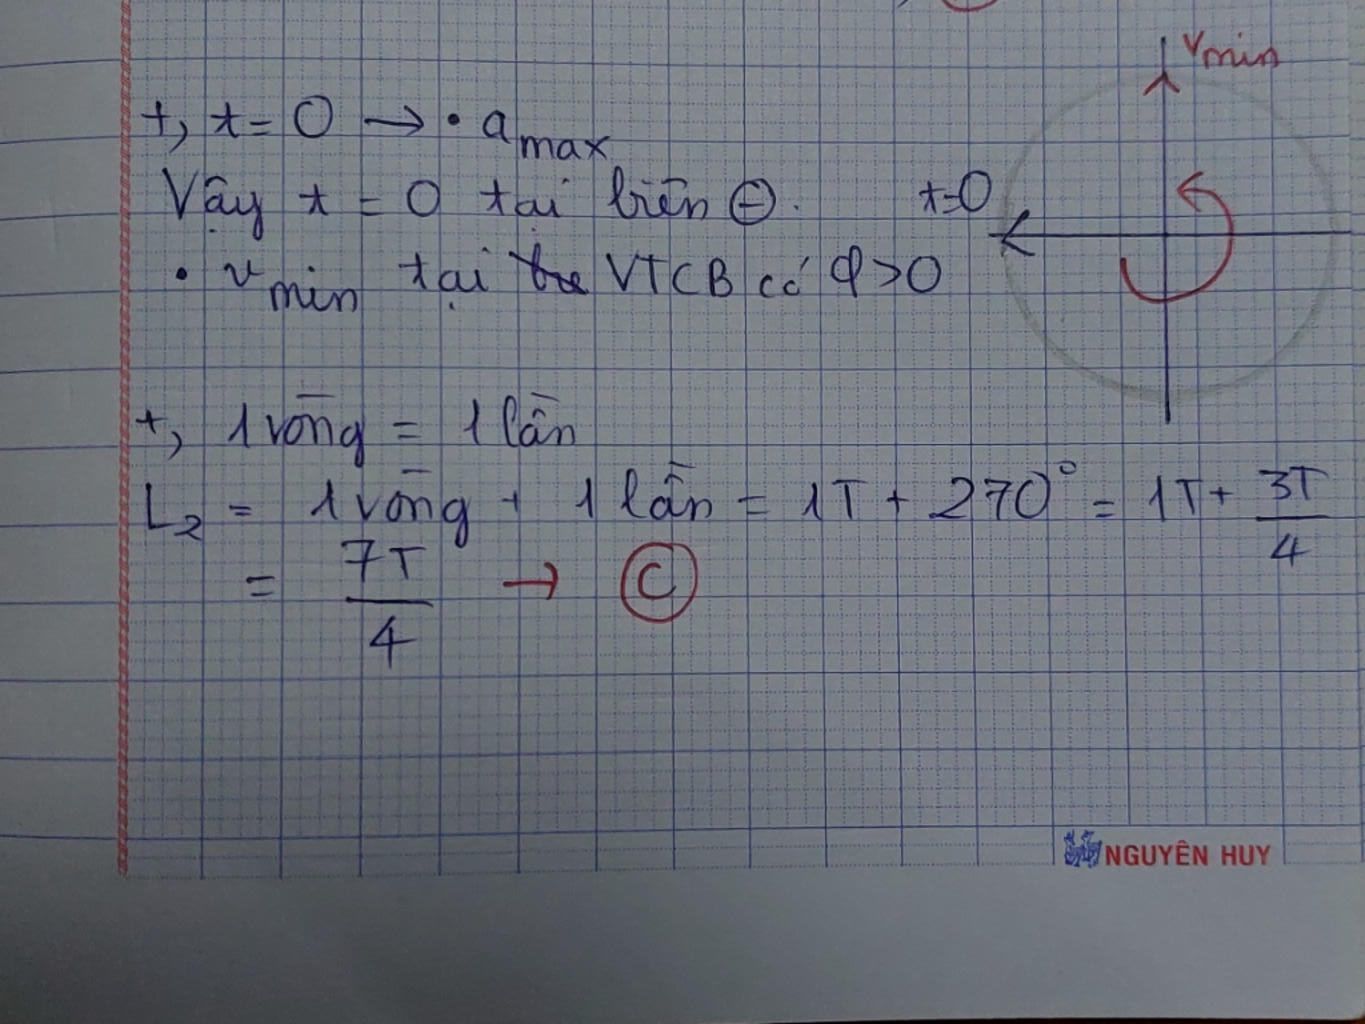 Vmin
+, t = 0 → • a max
Vậy t = 0 tại biên ⊖.
t=0
• v min tại VTCB có φ > 0
+, 1 vòng = 1 lần
L2 = 1 vòng + 1 lần = 1T + 270° = 1T + 3T/4
= 7T/4 → Ⓒ
NGUYÊN HUY